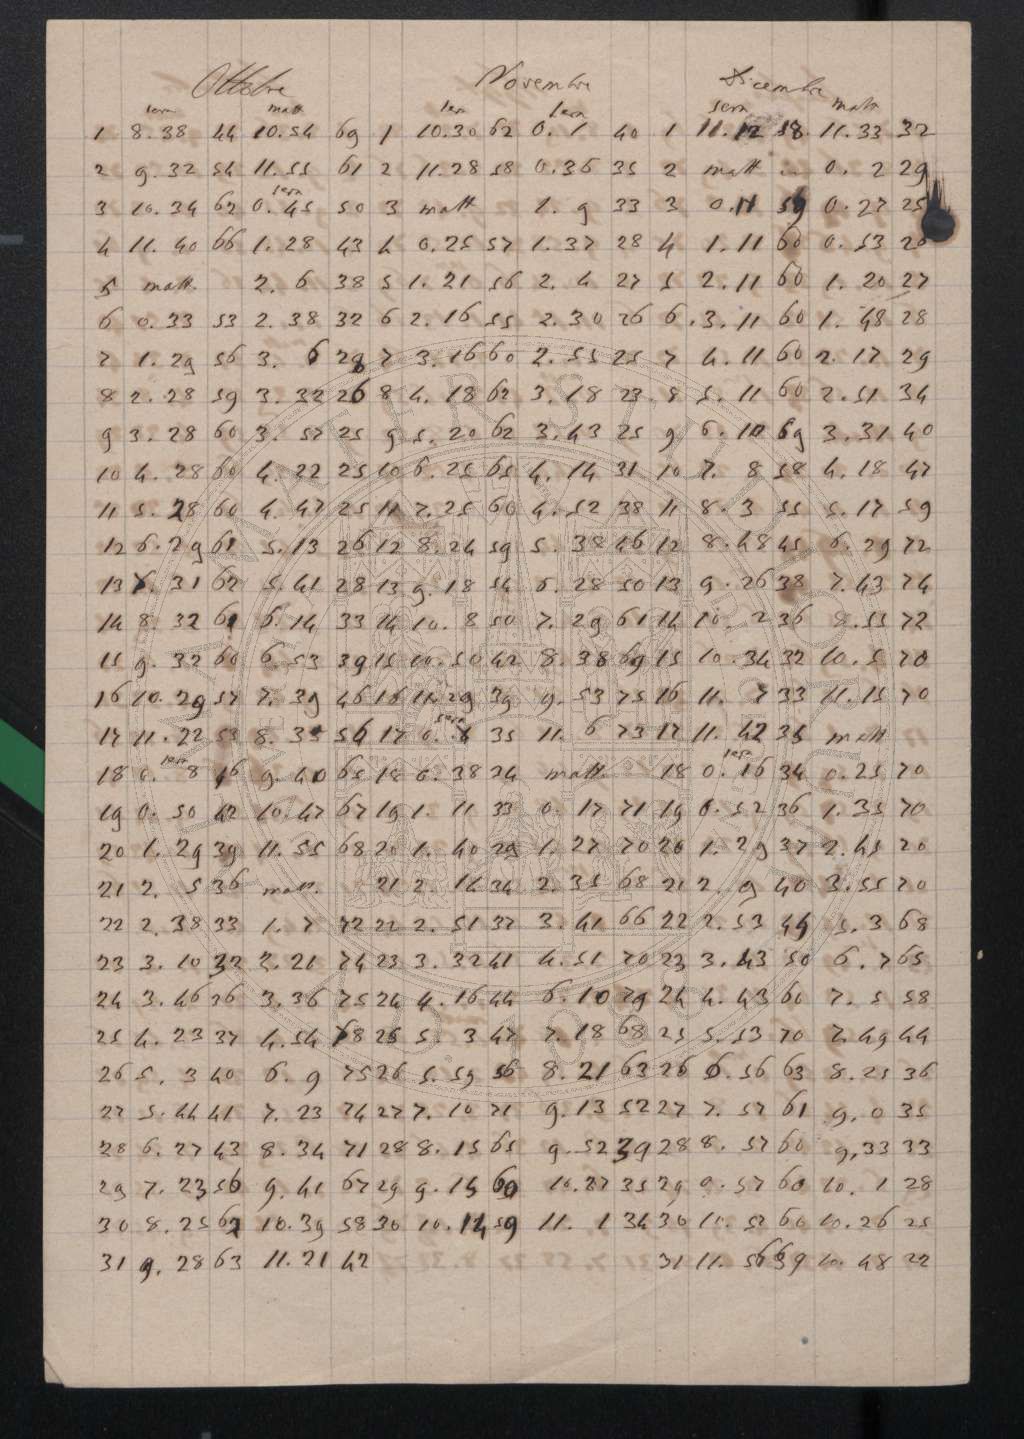 Ottobre Novembre Dicembre
sera matt sera sera sera matt
1 8.38 44 10.54 69 1 10.30 62 0. 1 40 1 11.12 58. 11.33 32
2 9.32 54 11.55 61 2 11.28 58 0.36 35 2 matt 0. 2 29
sera
3 10.34 62 0.45 50 3 matt 1. 9 33 3 0.11 59 0.27 25
4 11.40 66 1.28 43 4 0.25 57 1.37 28 4 1.11 60 0.53 26
5 matt. 2. 6 38 5 1.21 56 2. 4 27 5 2.11 60 1.20 27
6 0.33 53 2.38 32 6 2.16 55 2.30 26 6 3.11 60 1.48 28
7 1.29 56 3. 6 28 7 3.16 60 2.55 25 7 4.11 60 2.17 29
8 2.28 59 3.32 26 8 4.18 62 3.18 23 8 5.11 60 2.51 34
9 3.28 60 3.57 25 9 5.20 62 3.43 25 9 6.10 69 3.31 40
10 4.28 60 4.22 25 10 6.25 65 4.14 31 10 7. 8 58 4.18 47
11 5.28 60 4.47 25 11 7.25 60 4.52 38 11 8.3 55 5.17 59
12 6.29 61 5.13 26 12 8.24 59 5.38 46 12 8.48 45 6.29 72
13 7.31 62 5.41 28 13 9.18 54 6.28 50 13 9.26 38 7.43 74
14 8.32 61 6.14 33 14 10. 8 50 7.29 61 14 10. 2 36 8.53 72
15 9.32 60 6.53 39 15 10.50 42 8.38 69 15 10.34 32 10.5 70
16 10.29 57 7.39 46 16 11.29 39 9.53 75 16 11. 7 33 11.15 70
sera
17 11.22 53 8.35 54 17 0. 8 35 11. 6 73 17 11.42 35 matt
sera sera
18 0. 8 46 9.40 65 18 0.38 34 matt. 18 0.16 34 0.25 70
19 0.50 42 10.47 67 19 1.11 33 0.17 71 19 0.52 36 1.35 70
20 1.29 39 11.55 68 20 1.40 29 1.27 70 20 1.29 37 2.45 70
21 2. 5 36 matt. 21 2.14 34 2.35 68 21 2. 9 40 3.55 70
22 2.38 33 1. 7 72 22 2.51 37 3.41 66 22 2.53 44 5.3 68
23 3.10 32 2.21 74 23 3.32 41 4.51 70 23 3.43 50 6.7 65
24 3.46 36 3.36 75 24 4.16 44 6.10 79 24 4.43 60 7.5 58
25 4.23 37 4.54 78 25 5. 3 47 7.18 68 25 5.53 70 7.49 44
26 5. 3 40 6. 9 75 26 5.59 56 8.21 63 26 6.56 63 8.25 36
27 5.44 41 7.23 74 27 7.10 71 9.13 52 27 7.57 61 9.0 35
28 6.27 43 8.34 71 28 8.15 65 9.52 39 28 8.57 60 9.33 33
29 7.23 56 9.41 67 29 9.15 60 10.27 35 29 9.57 60 10. 1 28
30 8.25 62 10.39 58 30 10.14 59 11. 1 34 30 10.57 60 10.26 25
31 9.28 63 11.21 42 31 11.56 39 10.48 22